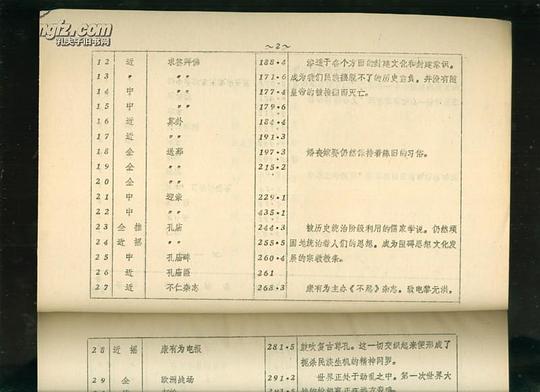 ~2~
12 近 求签拜佛 188·4 渗透于各个方面的封建文化和封建意识，
13 〃 〃〃 171·6 成为我们民族摆脱不了的历史重负，并没有随
14 中 〃〃 177·4 皇帝的被推翻而灭亡。
15 中 〃〃 179·6
16 近 算卦 184·4
17 近 〃〃 191·3
18 全 送葬 197·3 婚丧嫁娶仍然保持着陈旧的习俗。
19 全 〃〃 215·2
20 全 〃〃
21 中 迎亲 229·1
22 中 〃〃 435·1
23 全 推 孔庙 244·3 被历史统治阶级利用的儒家学说，仍然顽
24 近 摇 〃〃 255·5 固地统治着人们的思想，成为阻碍思想文化发
25 中 孔庙碑 260·4 展的宗教教条。
26 近 孔庙 261
27 近 不仁杂志 268·3 康有为主办《不忍》杂志，致电黎元洪，
28 近 摇 康有为电报 281·5 鼓吹复古尊孔。这一切交织起来便形成了
扼杀民族生机的精神网罗。
29 全 欧洲战场 291·2 世界正处于动乱之中，第一次世界大